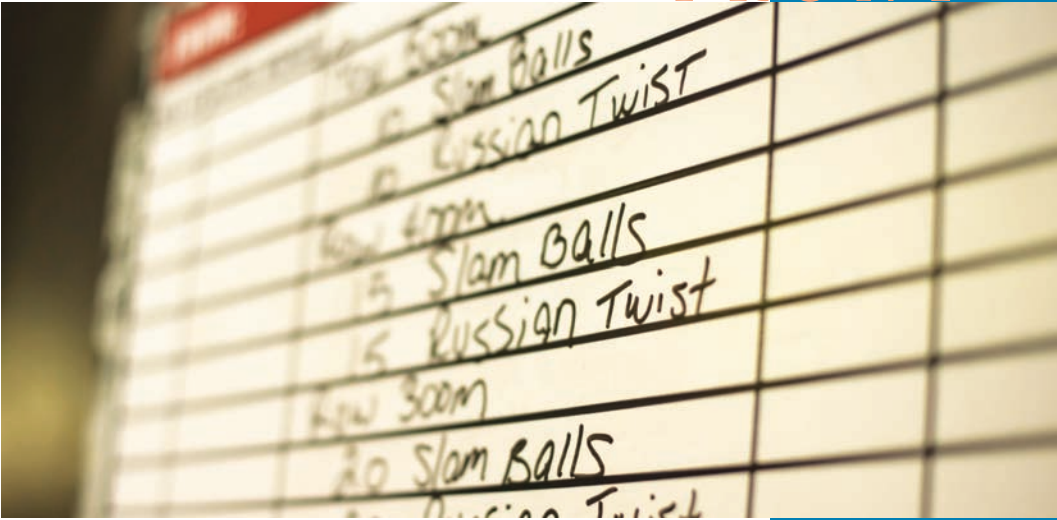 Row 500m
10 Slam Balls
10 Russian Twist
Row 400m
15 Slam Balls
15 Russian Twist
Row 300m
20 Slam Balls
Russian Twist